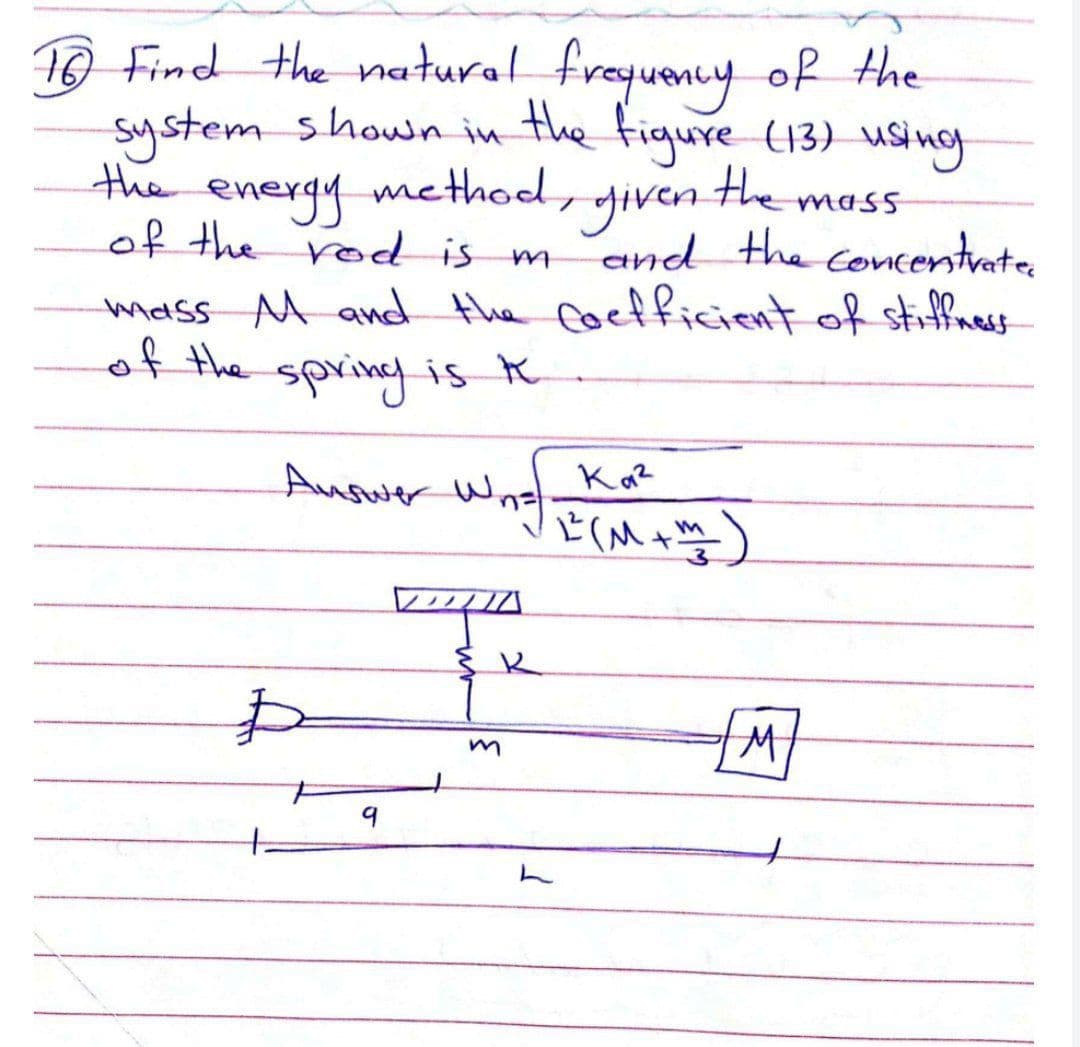 16 Find the natural frequency of the
system shown in the figure (13) using
the energy method, given the mass
of the rod is m and the concentrate
mass M and the coefficient of stiffness
of the spring is K.
Answer Wn=√ Ka²
L²(M + m/3)
K
m
M
a
L